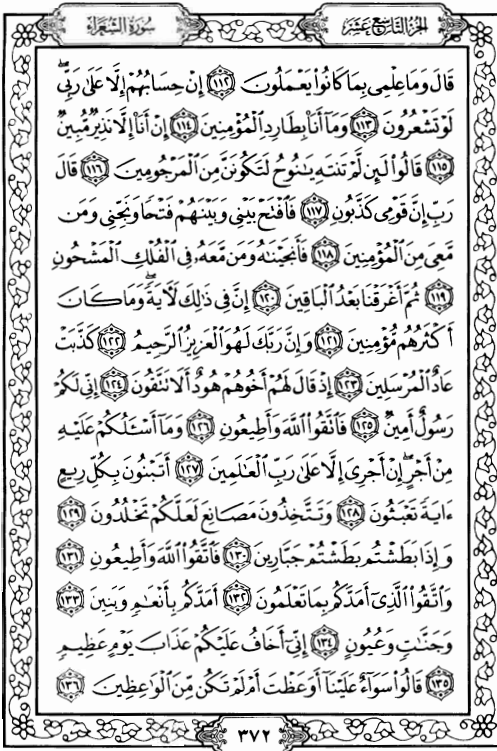 سُورَةُ الشُّعَرَاءِ
الجُزْءُ التَّاسِعَ عَشَرَ
قَالَ وَمَا عِلْمِى بِمَا كَانُوا۟ يَعْمَلُونَ ١١٢ إِنْ حِسَابُهُمْ إِلَّا عَلَىٰ رَبِّى ۖ
لَوْ تَشْعُرُونَ ١١٣ وَمَآ أَنَا۠ بِطَارِدِ ٱلْمُؤْمِنِينَ ١١٤ إِنْ أَنَا۠ إِلَّا نَذِيرٌ مُّبِينٌ
١١٥ قَالُوا۟ لَئِن لَّمْ تَنتَهِ يَـٰنُوحُ لَتَكُونَنَّ مِنَ ٱلْمَرْجُومِينَ ١١٦ قَالَ
رَبِّ إِنَّ قَوْمِى كَذَّبُونِ ١١٧ فَٱفْتَحْ بَيْنِى وَبَيْنَهُمْ فَتْحًا وَنَجِّنِى وَمَن
مَّعِىَ مِنَ ٱلْمُؤْمِنِينَ ١١٨ فَأَنجَيْنَـٰهُ وَمَن مَّعَهُۥ فِى ٱلْفُلْكِ ٱلْمَشْحُونِ
١١٩ ثُمَّ أَغْرَقْنَا بَعْدُ ٱلْبَاقِينَ ١٢٠ إِنَّ فِى ذَٰلِكَ لَـَٔايَةً ۖ وَمَا كَانَ
أَكْثَرُهُم مُّؤْمِنِينَ ١٢١ وَإِنَّ رَبَّكَ لَهُوَ ٱلْعَزِيزُ ٱلرَّحِيمُ ١٢٢ كَذَّبَتْ
عَادٌ ٱلْمُرْسَلِينَ ١٢٣ إِذْ قَالَ لَهُمْ أَخُوهُمْ هُودٌ أَلَا تَتَّقُونَ ١٢٤ إِنِّى لَكُمْ
رَسُولٌ أَمِينٌ ١٢٥ فَٱتَّقُوا۟ ٱللَّهَ وَأَطِيعُونِ ١٢٦ وَمَآ أَسْـَٔلُكُمْ عَلَيْهِ
مِنْ أَجْرٍ ۖ إِنْ أَجْرِىَ إِلَّا عَلَىٰ رَبِّ ٱلْعَـٰلَمِينَ ١٢٧ أَتَبْنُونَ بِكُلِّ رِيعٍ
ءَايَةً تَعْبَثُونَ ١٢٨ وَتَتَّخِذُونَ مَصَانِعَ لَعَلَّكُمْ تَخْلُدُونَ ١٢٩
وَإِذَا بَطَشْتُم بَطَشْتُمْ جَبَّارِينَ ١٣٠ فَٱتَّقُوا۟ ٱللَّهَ وَأَطِيعُونِ ١٣١
وَٱتَّقُوا۟ ٱلَّذِىٓ أَمَدَّكُم بِمَا تَعْلَمُونَ ١٣٢ أَمَدَّكُم بِأَنْعَـٰمٍ وَبَنِينَ ١٣٣
وَجَنَّـٰتٍ وَعُيُونٍ ١٣٤ إِنِّىٓ أَخَافُ عَلَيْكُمْ عَذَابَ يَوْمٍ عَظِيمٍ
١٣٥ قَالُوا۟ سَوَآءٌ عَلَيْنَآ أَوَعَظْتَ أَمْ لَمْ تَكُن مِّنَ ٱلْوَٰعِظِينَ ١٣٦
٣٧٢